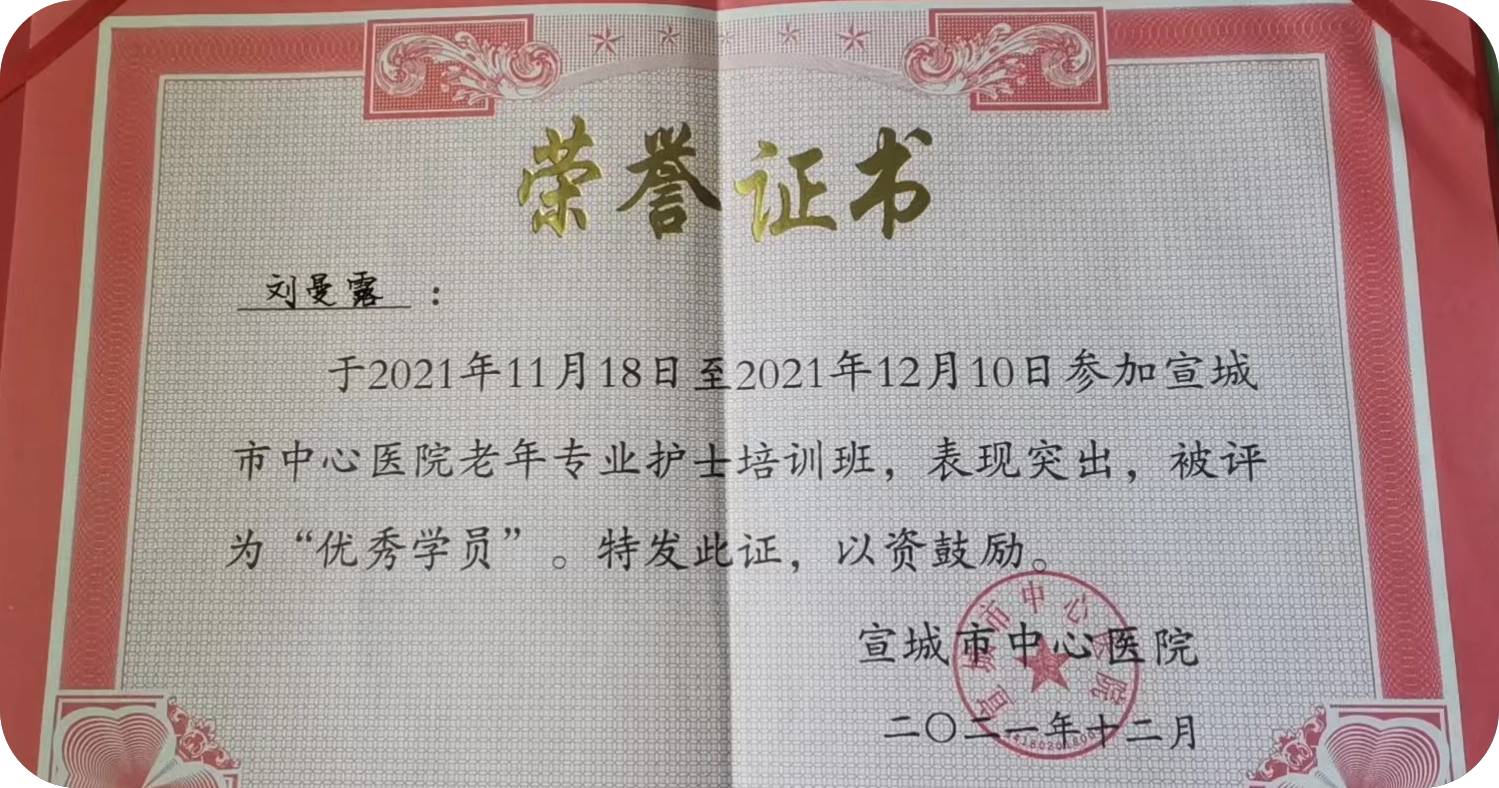 荣誉证书
刘曼露：
于2021年11月18日至2021年12月10日参加宣城
市中心医院老年专业护士培训班，表现突出，被评
为“优秀学员”。特发此证，以资鼓励。
宣城市中心医院
二〇二一年十二月
宣城市中心医院